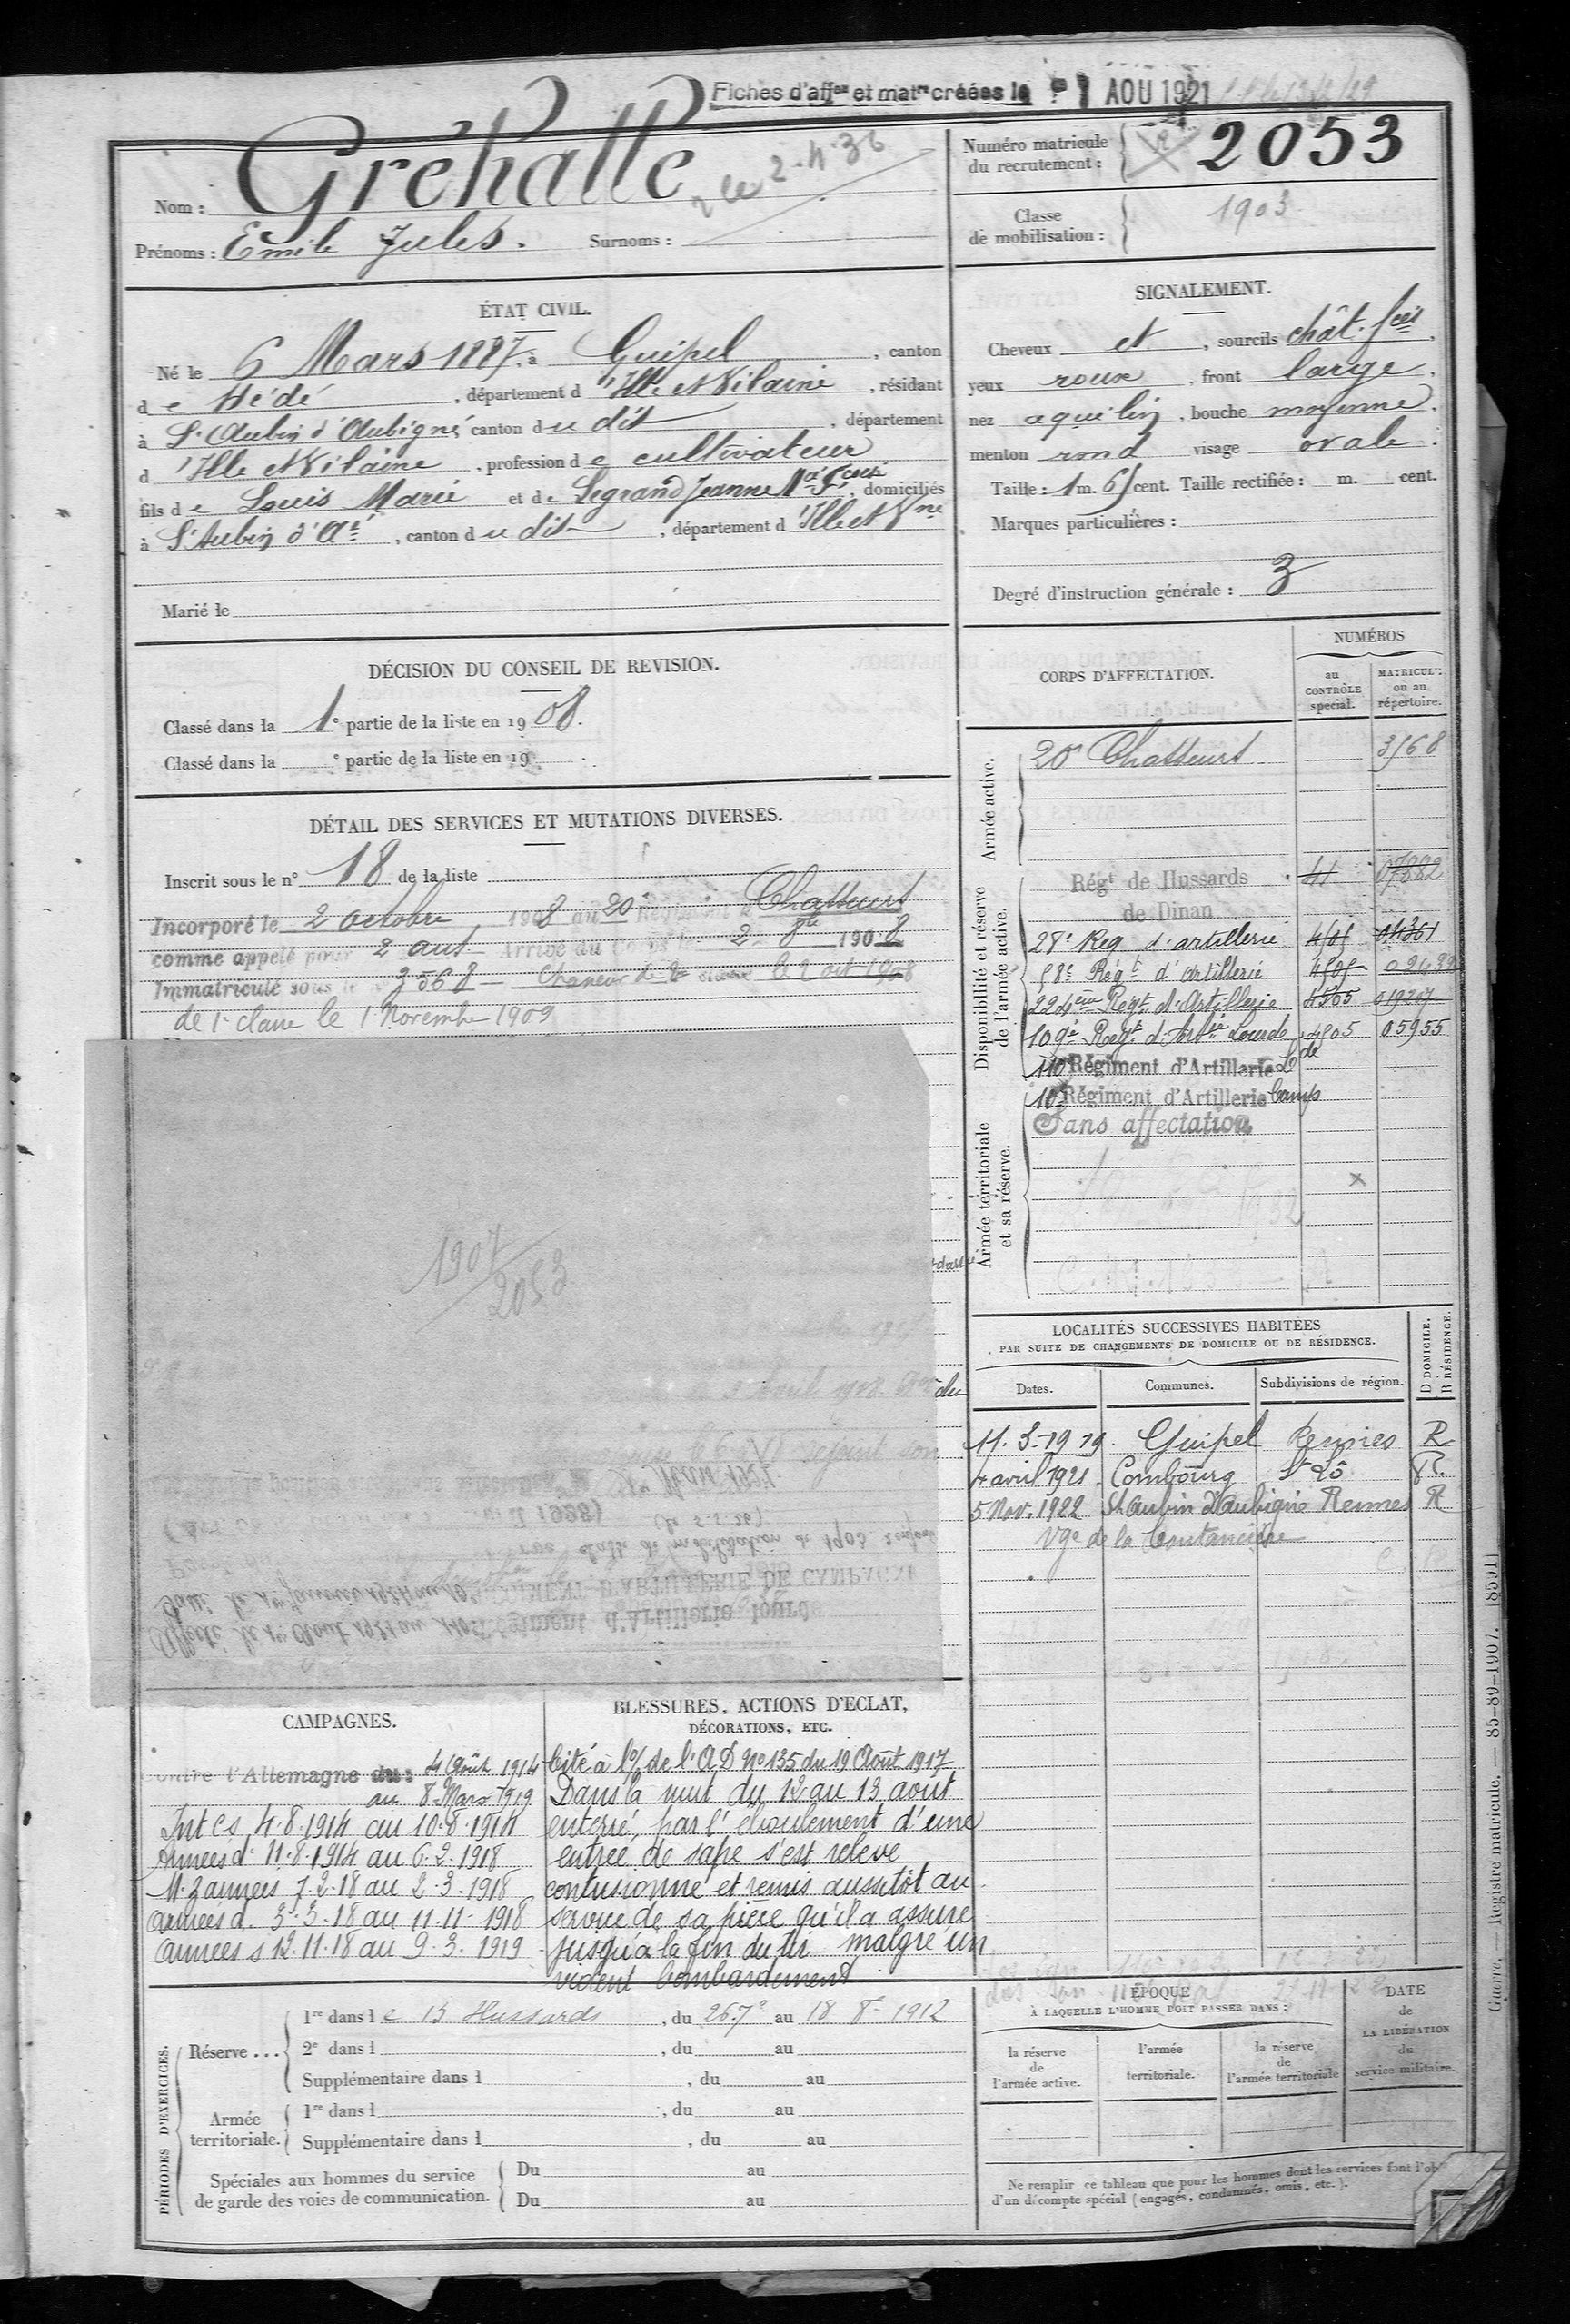 Fiches d'affon et matre créées le 1 AOU 1921
Numéro matricule du recrutement : 2053
Nom : Gréhalle
2-4-36
Prénoms : Emile Jules. Surnoms :
Classe de mobilisation : 1903
ÉTAT CIVIL.
Né le 6 Mars 1887, à Guipel, canton
de Hédé, département d'Ille et Vilaine, résidant
à St Aubin d'Aubigné canton du dit, département
d'Ille et Vilaine, profession de cultivateur
fils de Louis Marie et de Legrand Jeanne Ma Fcoise, domiciliés
à St Aubin d'Aé, canton du dit, département d'Ille et Vne
Marié le
SIGNALEMENT.
Cheveux et, sourcils chât. fcés,
yeux roux, front large,
nez aquilin, bouche moyenne,
menton rond visage ovale.
Taille : 1 m. 65 cent. Taille rectifiée : m. cent.
Marques particulières :
Degré d'instruction générale : 3
DÉCISION DU CONSEIL DE REVISION.
Classé dans la 1e partie de la liste en 1908.
Classé dans la e partie de la liste en 19 .
DÉTAIL DES SERVICES ET MUTATIONS DIVERSES.
Inscrit sous le n° 18 de la liste
Incorporé le 2 octobre 1908 au 20e Régiment de Chasseurs
comme appelé pour 2 ans Arrivé au Corps le 2 8bre 1908
Immatriculé sous le 3568 - Chasseur de 2e classe le 2 oct 1908
de 1e classe le 1 Novembre 1909
1907
2053
CORPS D'AFFECTATION.
NUMÉROS
au CONTRÔLE spécial.
MATRICULE ou au répertoire.
Armée active.
20e Chasseurs 3568
Disponibilité et réserve de l'armée active.
Régt de Hussards 41 07882
de Dinan
28e Reg d'artillerie 4505 04361
58e Régt d'artillerie 4505
224ème Regt d'Artillerie 4505 019207
109e Regt d'Artie Lourde 4505 05955
110e Régiment d'Artillerie Lde
Armée territoriale et sa réserve.
10e Régiment d'Artillerie Camp
Sans affectation
LOCALITÉS SUCCESSIVES HABITÉES
PAR SUITE DE CHANGEMENTS DE DOMICILE OU DE RÉSIDENCE.
D DOMICILE. R RÉSIDENCE.
Dates. Communes. Subdivisions de région.
11.3-1919 Guipel Rennes R
4 avril 1921 Combourg St Lô R.
5 Nov. 1922 St Aubin d'Aubigné Rennes R
Vge de la Coutancière
Affecté le 1er Août 1921 au 110e Régiment d'Artillerie lourde
Passé le 1er Janvier 1924 au 10e RÉGIMENT D'ARTILLERIE DE CAMPAGNE
classe de mobilisation de 1903
CAMPAGNES.
Contre l'Allemagne du : 4 Août 1914
au 8 Mars 1919
Int CS 4.8.1914 au 10.8.1914
Armées d. 11.8.1914 au 6.2.1918
M. Z armées 7.2.18 au 2.3.1918
armées d. 3.3.18 au 11.11.1918
armées s 12.11.18 au 9.3.1919
BLESSURES, ACTIONS D'ÉCLAT,
DÉCORATIONS, ETC.
Cité à l'o/ de l'AD No 135 du 19 Août 1917
Dans la nuit du 12 au 13 août
enterré, par l'éboulement d'une
entrée de sape s'est relevé
contusionné et remis aussitôt au
service de sa pièce qu'il a assuré
jusqu'à la fin du tir malgré un
violent bombardement
PÉRIODES D'EXERCICES.
Réserve ... 1re dans le 13 Hussards, du 26.7e au 18 8e 1912
2e dans l , du au
Supplémentaire dans l , du au
Armée territoriale. 1re dans l , du au
Supplémentaire dans l , du au
Spéciales aux hommes du service de garde des voies de communication. Du au
Du au
ÉPOQUE
À LAQUELLE L'HOMME DOIT PASSER DANS :
la réserve de l'armée active.
l'armée territoriale.
la réserve de l'armée territoriale
DATE de LA LIBÉRATION du service militaire.
Ne remplir ce tableau que pour les hommes dont les services font l'ob
d'un décompte spécial (engagés, condamnés, omis, etc.).
Guerre. — Registre matricule. — 85-89-1907. [8591]